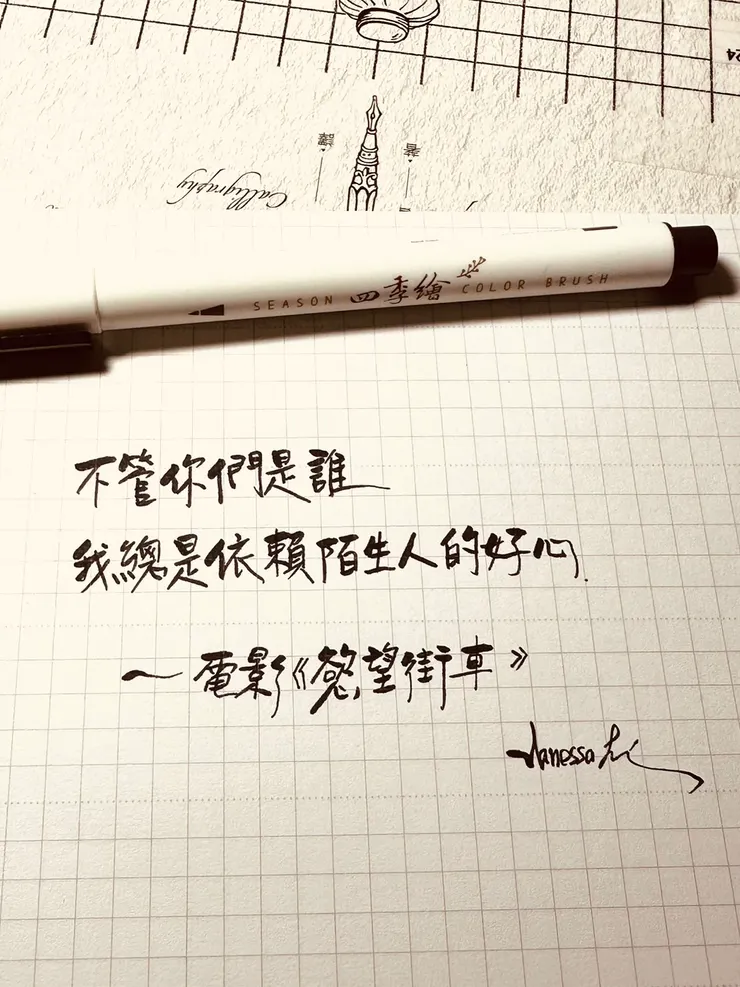 24
譯 著
Calligraphy
SEASON 四季繪 COLOR BRUSH
不管你們是誰
我總是依賴陌生人的好心.
~電影《慾望街車》
Vanessa